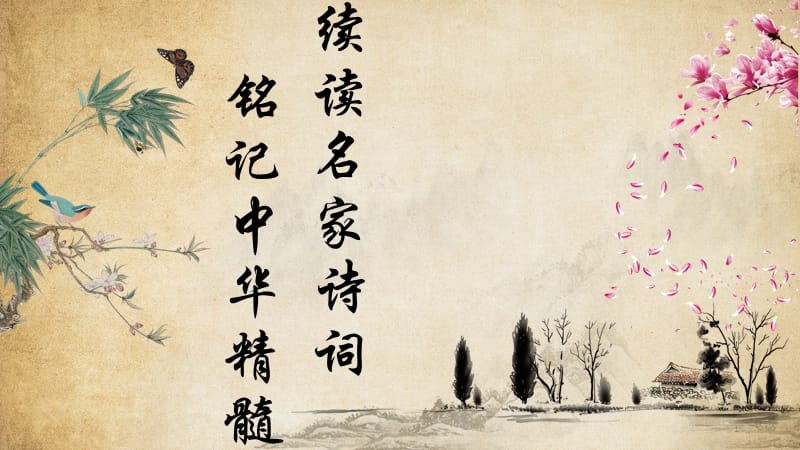 续读名家诗词
铭记中华精髓